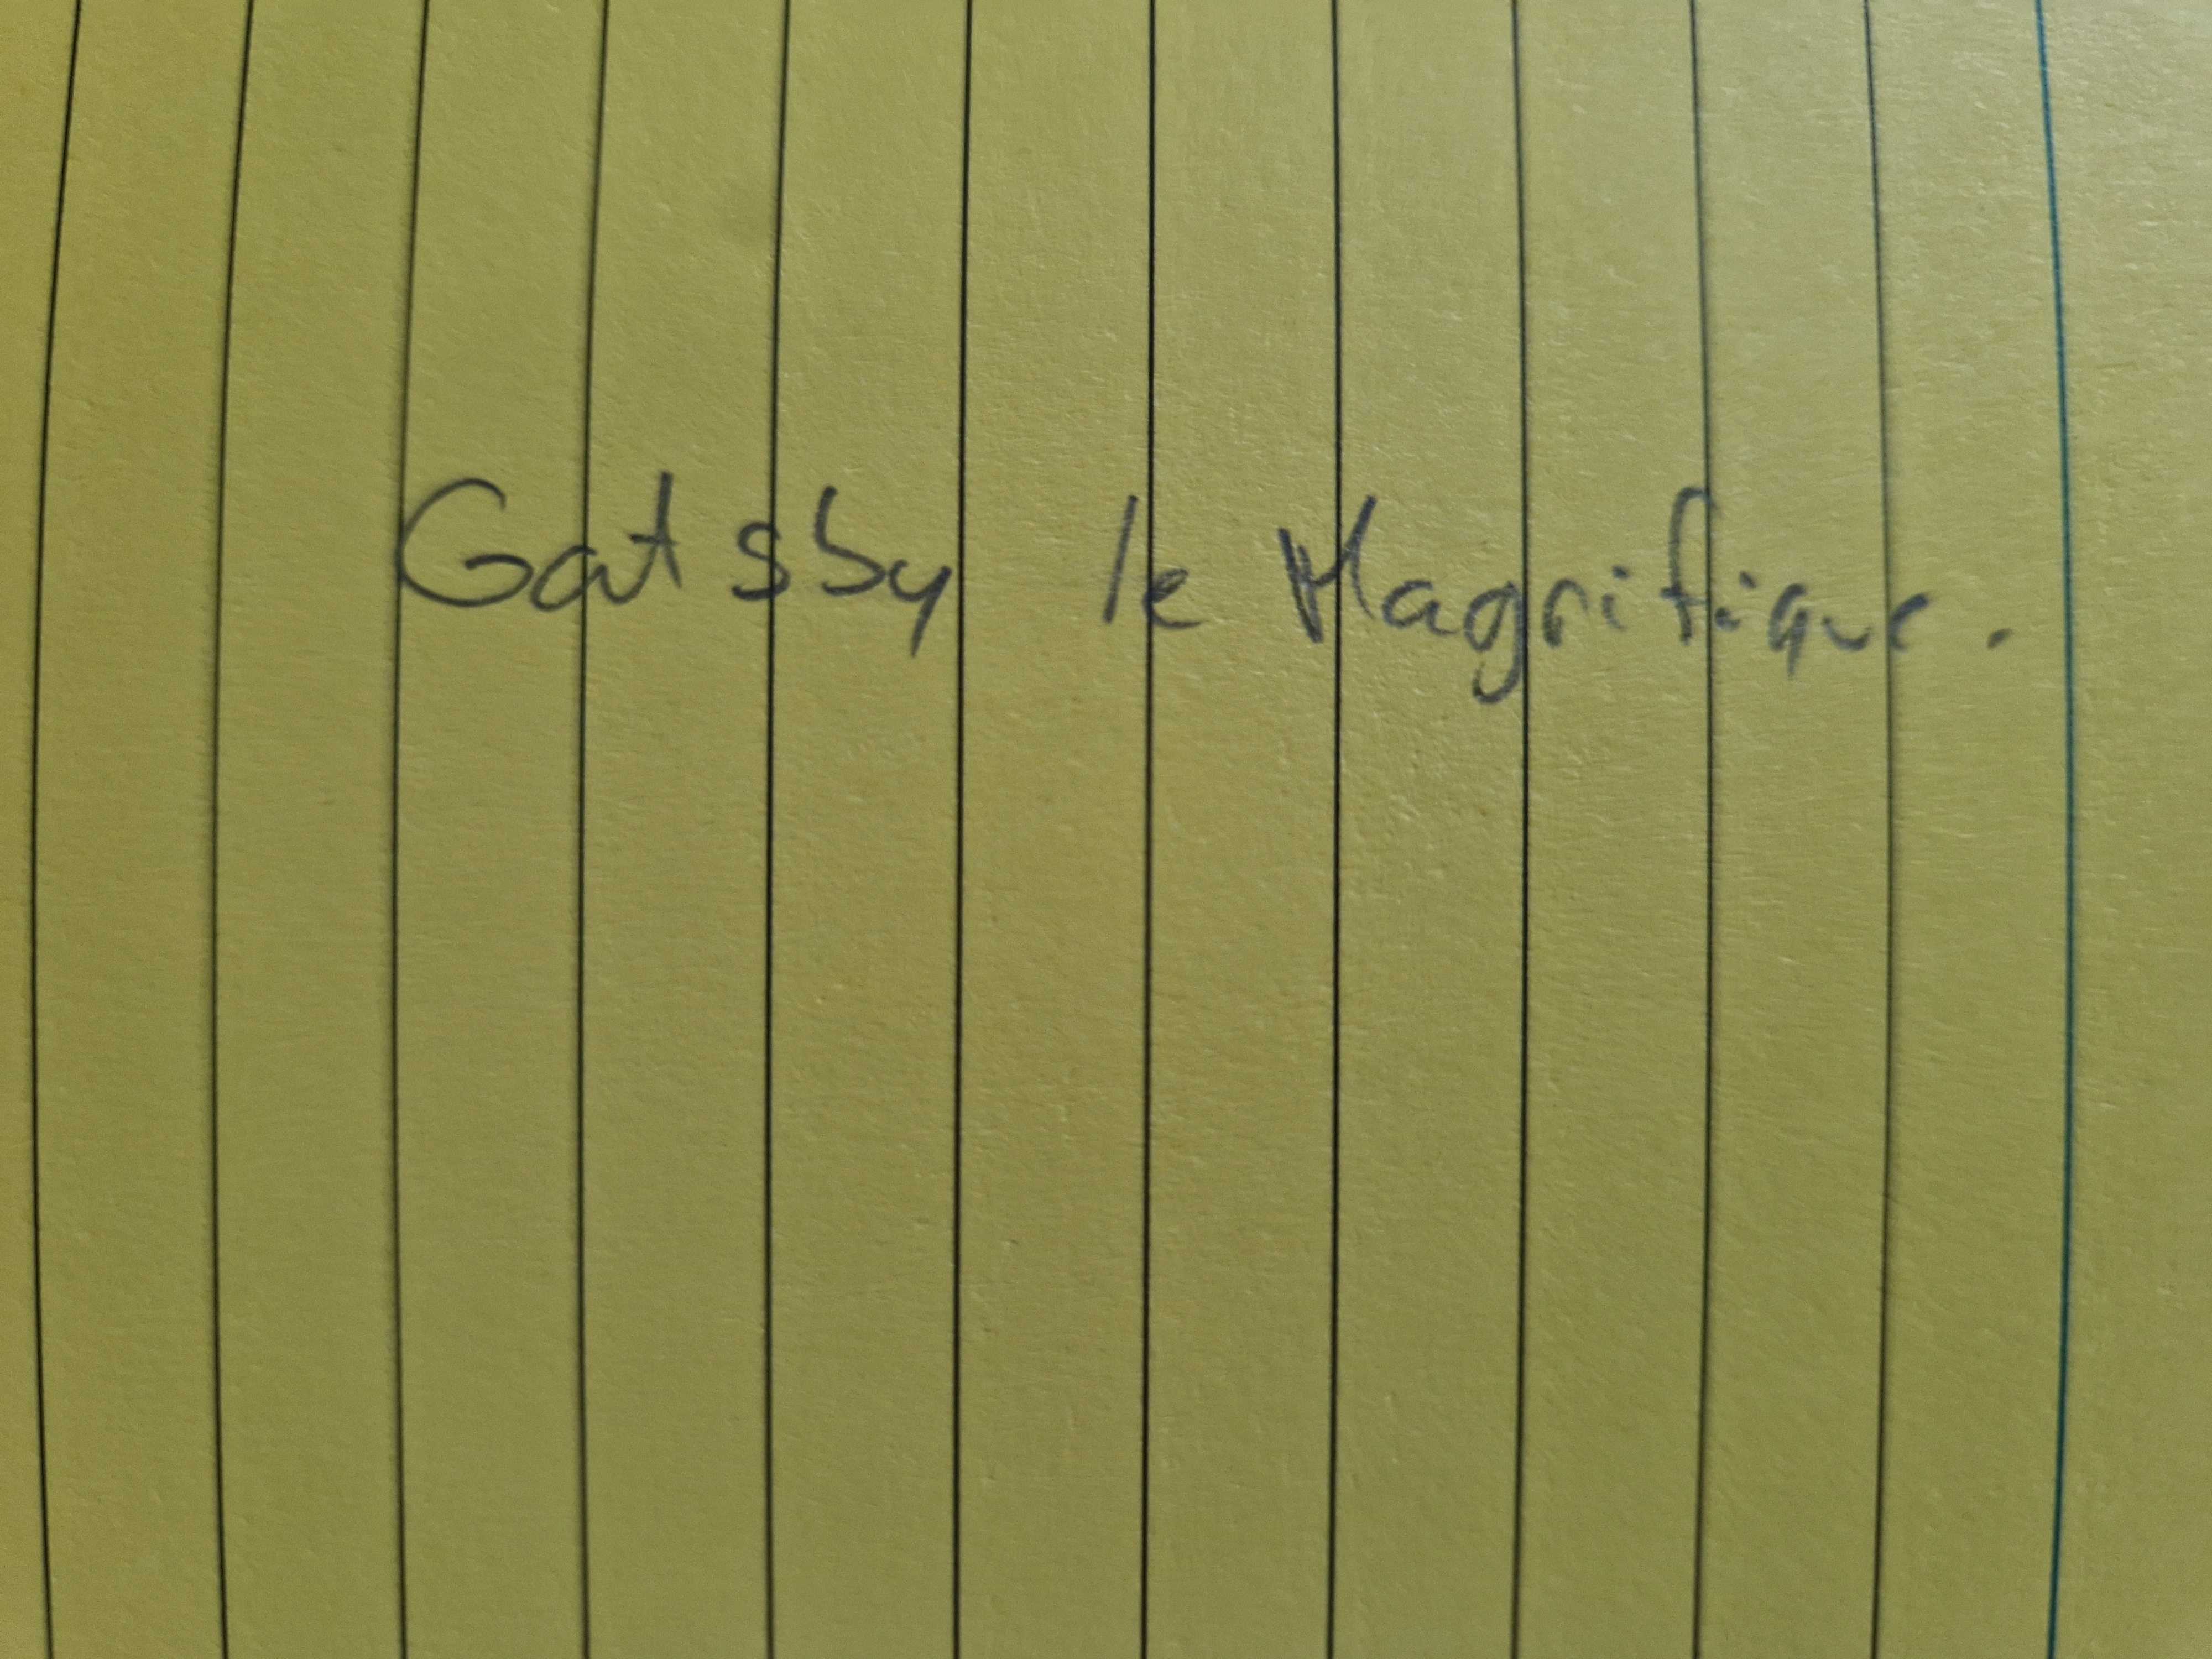 Gatsby le Magnifique.